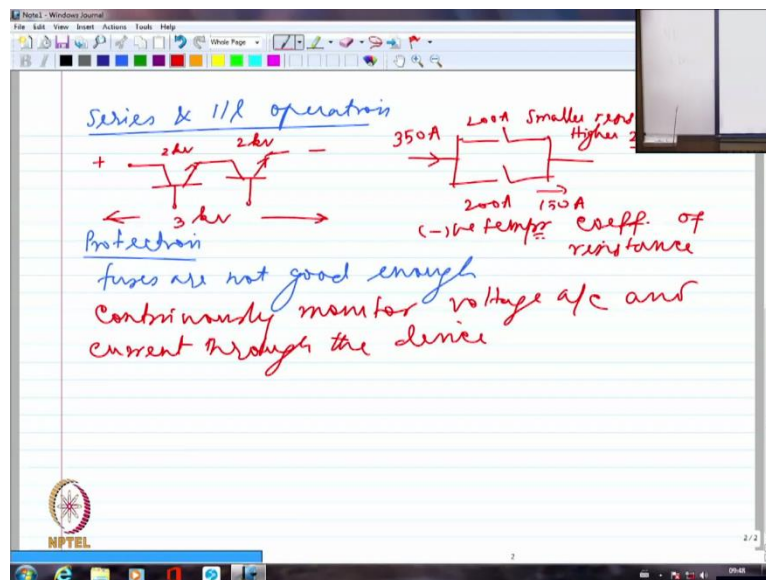 Note1 - Windows Journal
File Edit View Insert Actions Tools Help
Whole Page
Series & 11l operation
350A 200A Smaller resis
Higher
+ 2kv 2kv -
3 kv
200A 150A
(-)ve tempr coeff. of
resistance
Protection
fuses are not good enough
continuously monitor voltage a/c and
current through the device
NPTEL
2/2
2
09:48